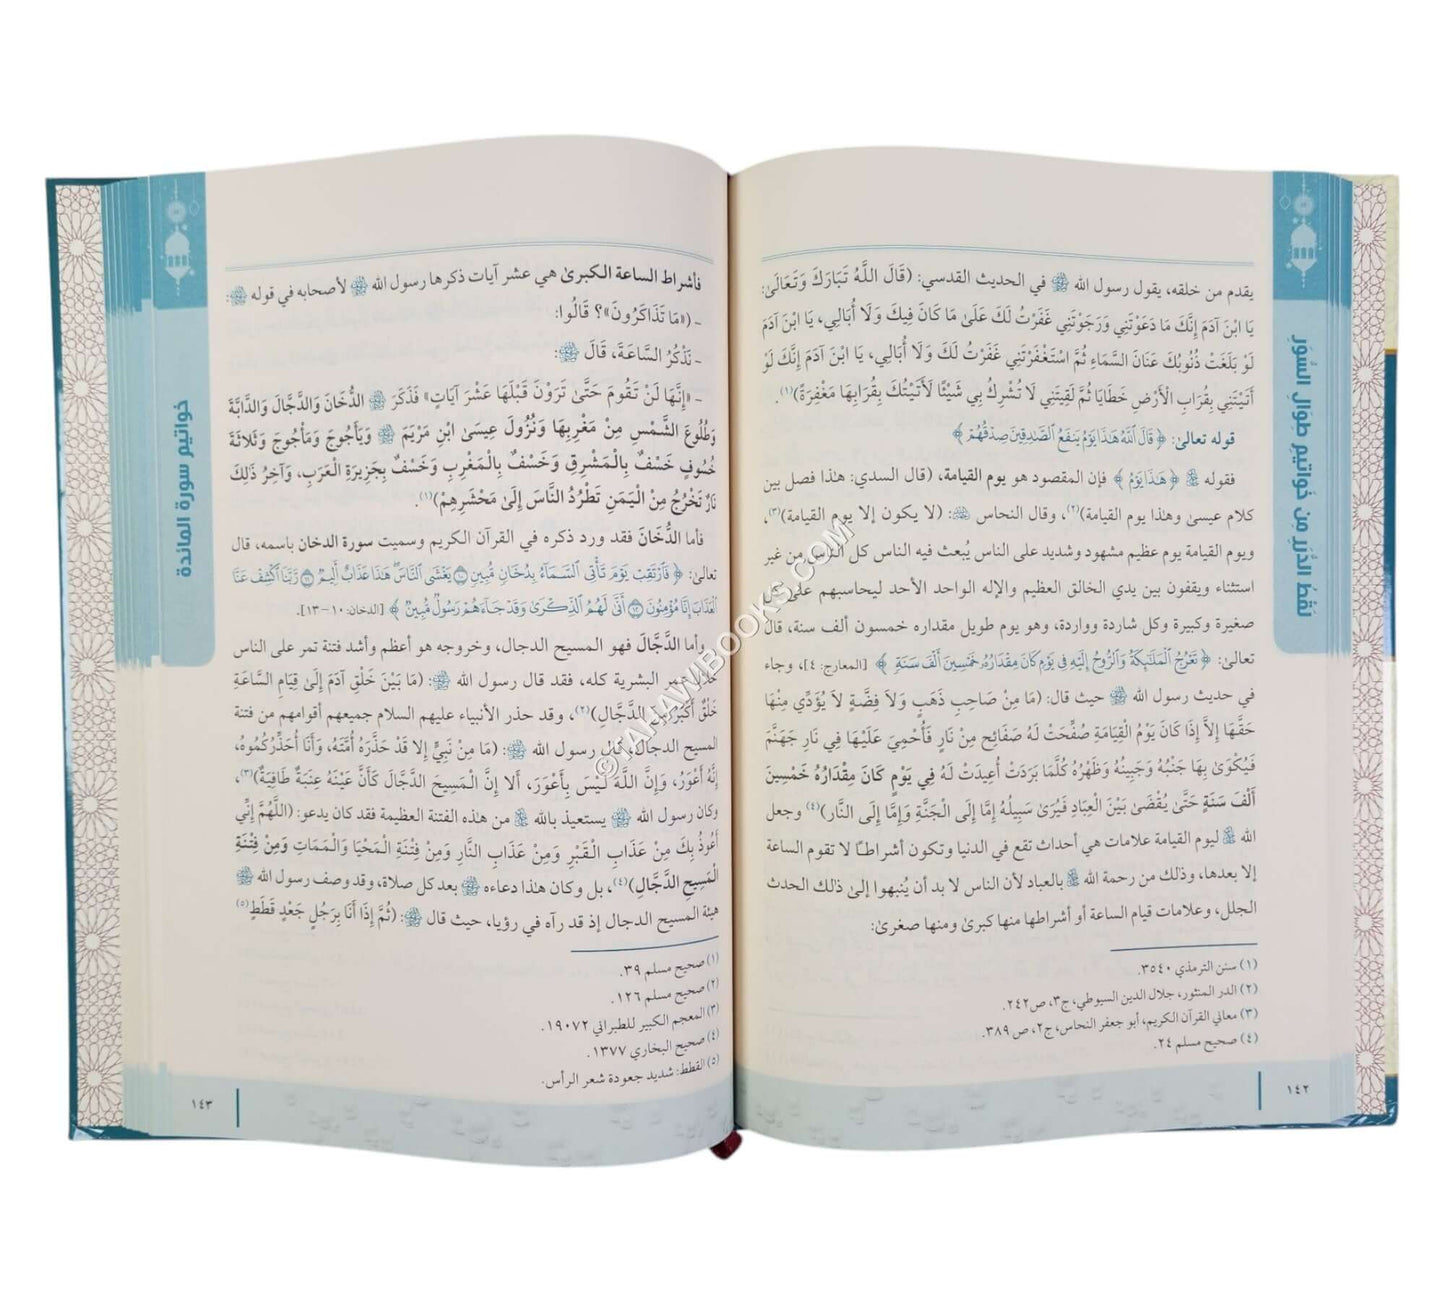 نَقْطُ الدُّرَرِ مِن خَواتِيمِ طِوالِ السُّوَر
يقدم من خلقه، يقول رسول الله ﷺ في الحديث القدسي: (قَالَ اللَّهُ تَبَارَكَ وَتَعَالَىٰ:
يَا ابْنَ آدَمَ إِنَّكَ مَا دَعَوْتَنِي وَرَجَوْتَنِي غَفَرْتُ لَكَ عَلَىٰ مَا كَانَ فِيكَ وَلَا أُبَالِي، يَا ابْنَ آدَمَ
لَوْ بَلَغَتْ ذُنُوبُكَ عَنَانَ السَّمَاءِ ثُمَّ اسْتَغْفَرْتَنِي غَفَرْتُ لَكَ وَلَا أُبَالِي، يَا ابْنَ آدَمَ إِنَّكَ لَوْ
أَتَيْتَنِي بِقُرَابِ الْأَرْضِ خَطَايَا ثُمَّ لَقِيتَنِي لَا تُشْرِكُ بِي شَيْئًا لَأَتَيْتُكَ بِقُرَابِهَا مَغْفِرَةً)(١).
قوله تعالىٰ: ﴿قَالَ ٱللَّهُ هَٰذَا يَوْمُ يَنفَعُ ٱلصَّٰدِقِينَ صِدْقُهُمْ﴾
فقوله ﷻ ﴿هَٰذَا يَوْمُ﴾ فإن المقصود هو يوم القيامة، (قال السدي: هٰذا فصل بين
كلام عيسىٰ وهٰذا يوم القيامة)(٢)، وقال النحاس: (لا يكون إلا يوم القيامة)(٣)،
ويوم القيامة يوم عظيم مشهود وشديد على الناس يُبعث فيه الناس كل الناس من غير
استثناء ويقفون بين يدي الخالق العظيم والإله الواحد الأحد ليحاسبهم على كل
صغيرة وكبيرة وكل شاردة وواردة، وهو يوم طويل مقداره خمسون ألف سنة، قال
تعالىٰ: ﴿تَعْرُجُ ٱلْمَلَٰٓئِكَةُ وَٱلرُّوحُ إِلَيْهِ فِي يَوْمٍ كَانَ مِقْدَارُهُۥ خَمْسِينَ أَلْفَ سَنَةٍ﴾ [المعارج: ٤]، وجاء
في حديث رسول الله ﷺ حيث قال: (مَا مِنْ صَاحِبِ ذَهَبٍ وَلَا فِضَّةٍ لَا يُؤَدِّي مِنْهَا
حَقَّهَا إِلَّا إِذَا كَانَ يَوْمُ الْقِيَامَةِ صُفِّحَتْ لَهُ صَفَائِحَ مِنْ نَارٍ فَأُحْمِيَ عَلَيْهَا فِي نَارِ جَهَنَّمَ
فَيُكْوَىٰ بِهَا جَنْبُهُ وَجَبِينُهُ وَظَهْرُهُ كُلَّمَا بَرَدَتْ أُعِيدَتْ لَهُ فِي يَوْمٍ كَانَ مِقْدَارُهُ خَمْسِينَ
أَلْفَ سَنَةٍ حَتَّىٰ يُقْضَىٰ بَيْنَ الْعِبَادِ فَيُرَىٰ سَبِيلُهُ إِمَّا إِلَى الْجَنَّةِ وَإِمَّا إِلَى النَّارِ)(٤) وجعل
الله ﷻ ليوم القيامة علامات هي أحداث تقع في الدنيا وتكون أشراطًا لا تقوم الساعة
إلا بعدها، وذلك من رحمة الله ﷻ بالعباد لأن الناس لا بد أن يُنبهوا إلىٰ ذلك الحدث
الجلل، وعلامات قيام الساعة أو أشراطها منها كبرىٰ ومنها صغرىٰ:
(١) سنن الترمذي ٣٥٤٠.
(٢) الدر المنثور، جلال الدين السيوطي، ج٣، ص٢٤٢.
(٣) معاني القرآن الكريم، أبو جعفر النحاس، ج٢، ص ٣٨٩.
(٤) صحيح مسلم ٢٤.
١٤٢
خواتيم سورة المائدة
فأشراط الساعة الكبرىٰ هي عشر آيات ذكرها رسول الله ﷺ لأصحابه في قوله ﷺ:
- («مَا تَذَاكَرُونَ»؟ قَالُوا:
- نَذْكُرُ السَّاعَةَ، قَالَ ﷺ:
- «إِنَّهَا لَنْ تَقُومَ حَتَّىٰ تَرَوْنَ قَبْلَهَا عَشْرَ آيَاتٍ» فَذَكَرَ ﷺ الدُّخَانَ وَالدَّجَّالَ وَالدَّابَّةَ
وَطُلُوعَ الشَّمْسِ مِنْ مَغْرِبِهَا وَنُزُولَ عِيسَىٰ ابْنِ مَرْيَمَ وَيَأْجُوجَ وَمَأْجُوجَ وَثَلَاثَةَ
خُسُوفٍ خَسْفٌ بِالْمَشْرِقِ وَخَسْفٌ بِالْمَغْرِبِ وَخَسْفٌ بِجَزِيرَةِ الْعَرَبِ، وَآخِرُ ذَلِكَ
نَارٌ تَخْرُجُ مِنَ الْيَمَنِ تَطْرُدُ النَّاسَ إِلَىٰ مَحْشَرِهِمْ)(١).
فأما الدُّخَانَ فقد ورد ذكره في القرآن الكريم وسميت سورة الدخان باسمه، قال
تعالىٰ: ﴿فَٱرْتَقِبْ يَوْمَ تَأْتِي ٱلسَّمَآءُ بِدُخَانٍ مُّبِينٍ ١٠ يَغْشَى ٱلنَّاسَ هَٰذَا عَذَابٌ أَلِيمٌ ١١ رَّبَّنَا ٱكْشِفْ عَنَّا
ٱلْعَذَابَ إِنَّا مُؤْمِنُونَ ١٢ أَنَّىٰ لَهُمُ ٱلذِّكْرَىٰ وَقَدْ جَآءَهُمْ رَسُولٌ مُّبِينٌ﴾ [الدخان: ١٠-١٣].
وأما الدَّجَّالَ فهو المسيح الدجال، وخروجه هو أعظم وأشد فتنة تمر على الناس
خلال عمر البشرية كله، فقد قال رسول الله ﷺ: (مَا بَيْنَ خَلْقِ آدَمَ إِلَىٰ قِيَامِ السَّاعَةِ
خَلْقٌ أَكْبَرُ مِنَ الدَّجَّالِ)(٢)، وقد حذر الأنبياء عليهم السلام جميعهم أقوامهم من فتنة
المسيح الدجال، قال رسول الله ﷺ: (مَا مِنْ نَبِيٍّ إِلا قَدْ حَذَّرَهُ أُمَّتَهُ، وَأَنَا أُحَذِّرُكُمُوهُ،
إِنَّهُ أَعْوَرُ، وَإِنَّ اللَّهَ لَيْسَ بِأَعْوَرَ، أَلا إِنَّ الْمَسِيحَ الدَّجَّالَ كَأَنَّ عَيْنَهُ عِنَبَةٌ طَافِيَةٌ)(٣)،
وكان رسول الله ﷺ يستعيذ بالله ﷻ من هٰذه الفتنة العظيمة فقد كان يدعو: (اللَّهُمَّ إِنِّي
أَعُوذُ بِكَ مِنْ عَذَابِ الْقَبْرِ وَمِنْ عَذَابِ النَّارِ وَمِنْ فِتْنَةِ الْمَحْيَا وَالْمَمَاتِ وَمِنْ فِتْنَةِ
الْمَسِيحِ الدَّجَّالِ)(٤)، بل وكان هٰذا دعاءه ﷺ بعد كل صلاة، وقد وصف رسول الله ﷺ
هيئة المسيح الدجال إذ قد رآه في رؤيا، حيث قال ﷺ: (ثُمَّ إِذَا أَنَا بِرَجُلٍ جَعْدٍ قَطَطٍ(٥)
(١) صحيح مسلم ٣٩.
(٢) صحيح مسلم ١٢٦.
(٣) المعجم الكبير للطبراني ١٩٠٧٢.
(٤) صحيح البخاري ١٣٧٧.
(٥) القطط: شديد جعودة شعر الرأس.
١٤٣
©TAHAWIBOOKS.COM